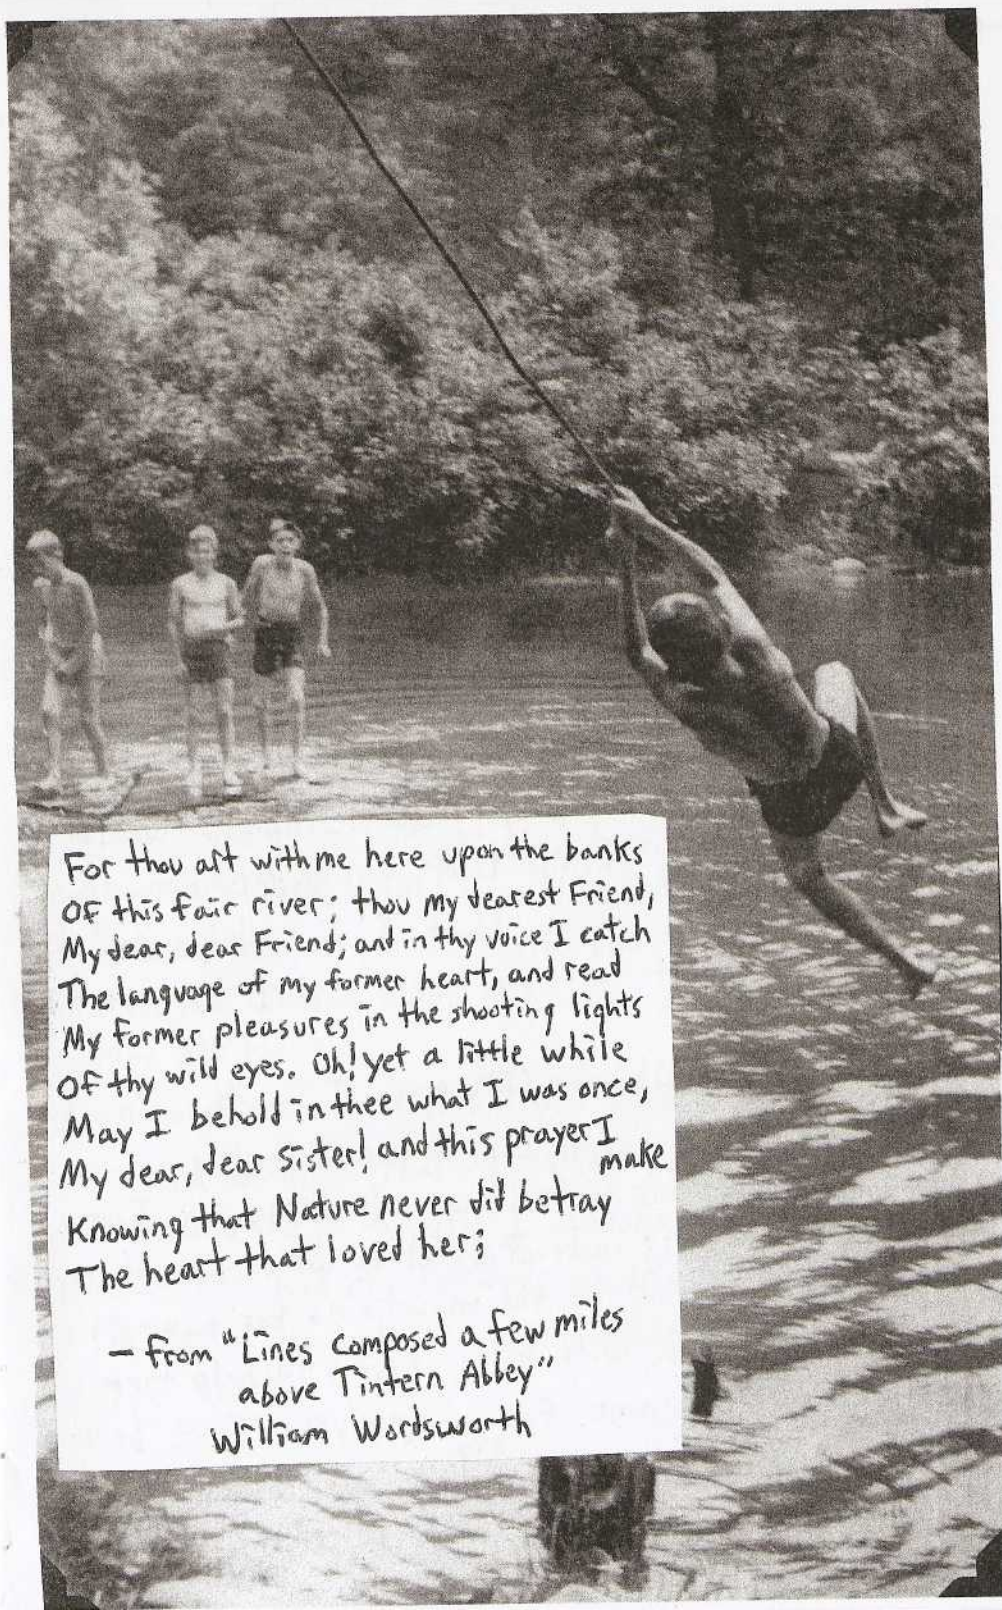 For thou art with me here upon the banks
Of this fair river; thou my dearest Friend,
My dear, dear Friend; and in thy voice I catch
The language of my former heart, and read
My former pleasures in the shooting lights
Of thy wild eyes. Oh! yet a little while
May I behold in thee what I was once,
My dear, dear Sister! and this prayer I
make
Knowing that Nature never did betray
The heart that loved her;
- from "Lines composed a few miles
above Tintern Abbey"
William Wordsworth